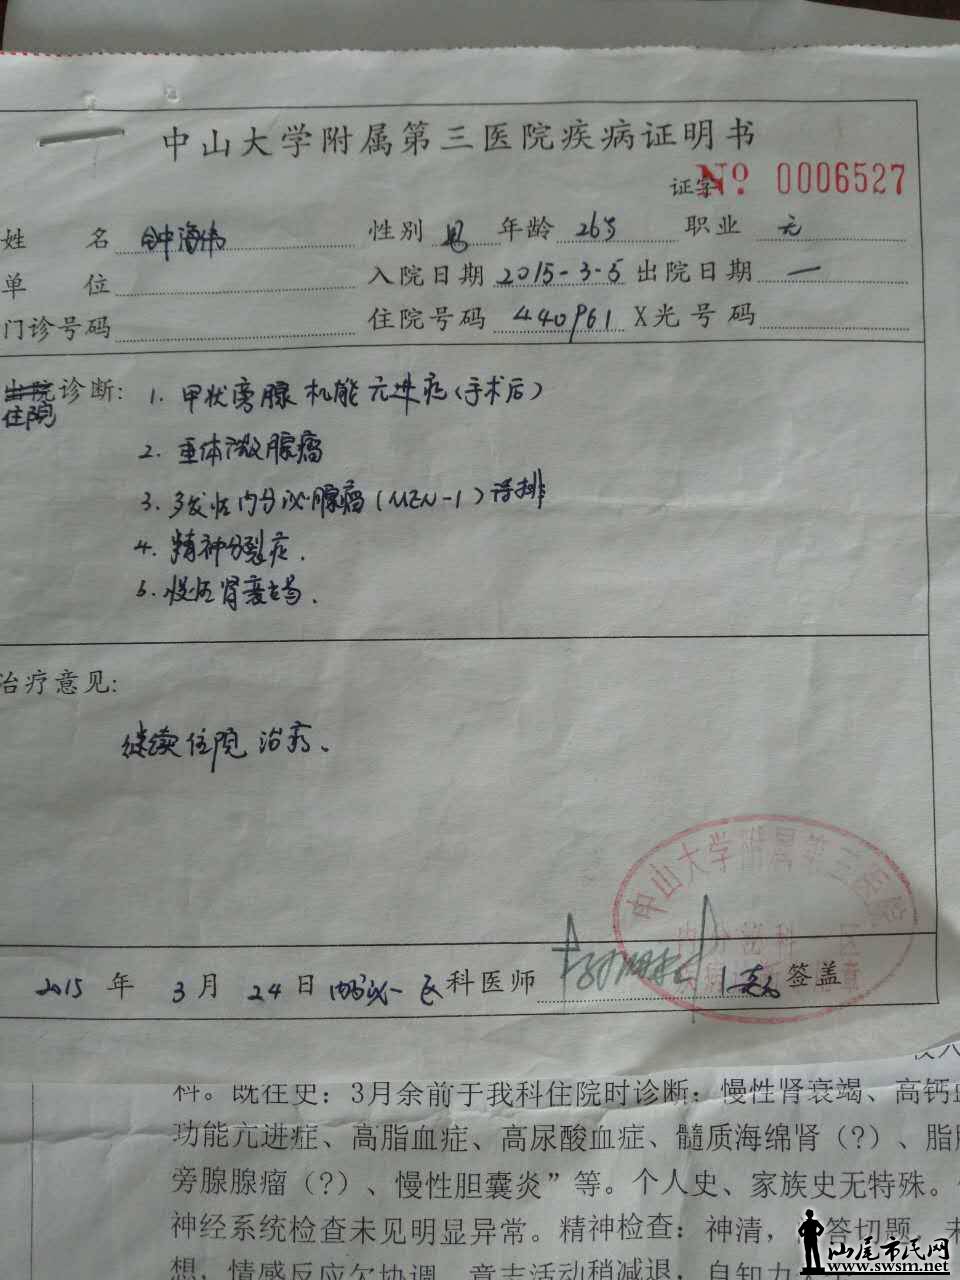 中山大学附属第三医院疾病证明书
证字 No. 0006527
姓 名 钟海伟 性别 男 年龄 26岁 职业 无
单 位 入院日期 2015-3-5 出院日期 一
门诊号码 住院号码 440961 X光号码
出院诊断: 1. 甲状旁腺机能亢进症(手术后)
住院
2. 垂体微腺瘤
3. 多发性内分泌腺瘤(MEN-1)待排
4. 精神分裂症.
5. 慢性肾衰竭.
治疗意见:
继续住院治疗.
中山大学附属第三医院
内分泌科 区
2015 年 3 月 24 日 内分泌一区科医师 签盖
科。既往史：3月余前于我科住院时诊断：慢性肾衰竭、高钙血
功能亢进症、高脂血症、高尿酸血症、髓质海绵肾（?）、脂肪
旁腺腺瘤（?）、慢性胆囊炎”等。个人史、家族史无特殊。
神经系统检查未见明显异常。精神检查：神清， 答切题，未
想，情感反应欠协调，意志活动稍减退，自知力
汕尾市民网
www.swsm.net